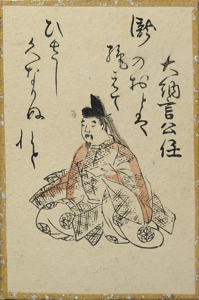 大納言公任
瀧のおとは
絶えて
ひさし
くなりぬれと